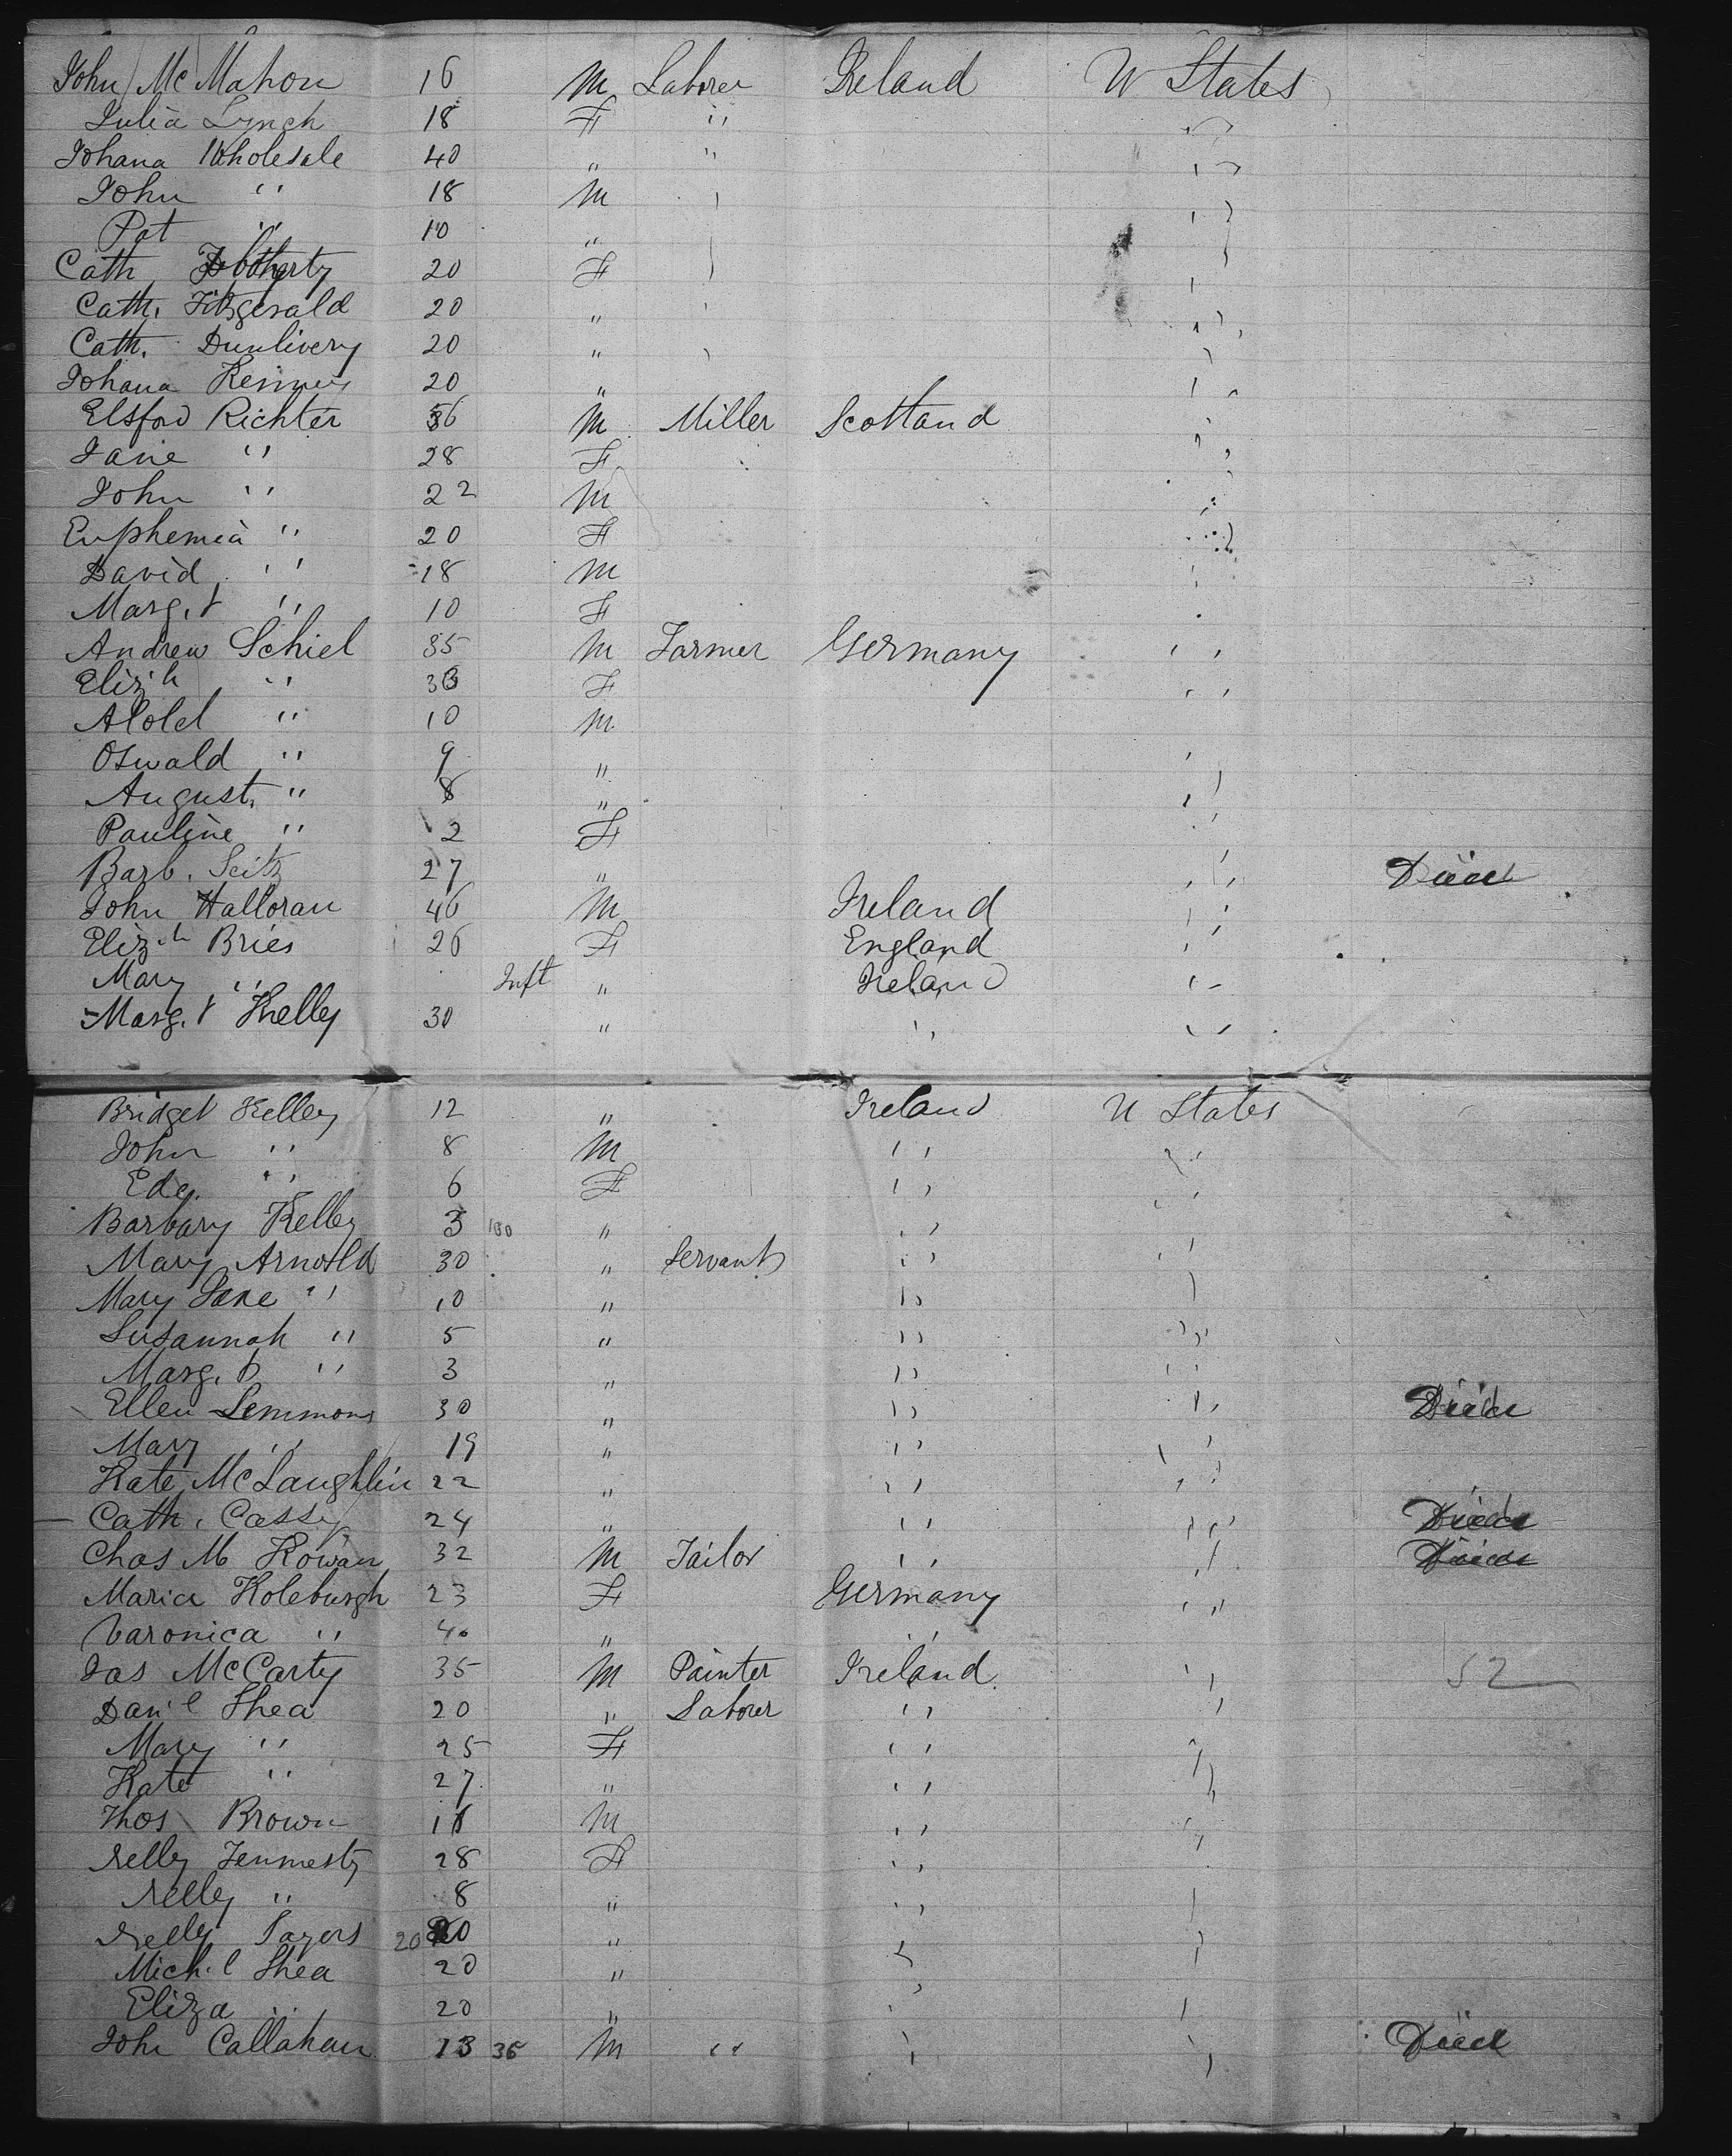 John McMahon 16 M Laborer Ireland U States
Julia Lynch 18 F " "
Johana Wholesale 40 " " "
John " 18 M " "
Pat " 10 " "
Cath Doherty 20 F "
Cath. Fitzgerald 20 " "
Cath. Dunlivery 20 " "
Johana 20 " "
Elsford Richter 36 M Miller Scotland "
Jane " 28 F "
John " 22 M "
Euphemia " 20 F "
David " 18 M "
Marg.t " 10 F "
Andrew Schiel 35 M Farmer Germany "
Eliz.h " 33 F "
Alold " 10 M
Oswald " 9 " "
August. " 8 " "
Pauline " 2 F "
Barb. Seitz 27 " " Died
John Halloran 46 M Ireland "
Eliz.h Bries 26 F England "
Mary " Inft " Ireland "
Marg.t Kelley 30 " " "
Bridget Kelley 12 " Ireland U States
John " 8 M " "
Edg. " 6 F " "
Barbary Kelley 3 " " "
Mary Arnold 30 " Servant " "
Mary Jane " 10 " " "
Susannah " 5 " " "
Marg.t " 3 " " "
Ellen Lemmons 30 " " " Died
Mary " 19 " " "
Kate McLaughlin 22 " " "
Cath. Cassy 24 " " " Died
Chas M Kowan 32 M Tailor " " Died
Maria Koleburgh 23 F Germany "
Varonica " 40 " "
Jas McCarty 35 M Painter Ireland " 52
Dan'l Shea 20 " Laborer " "
Mary " 25 F " "
Kate " 27 " " "
Thos Brown 16 M " "
Nelly Fenmesty 28 F " "
Nelly " 8 " " "
Nelly Sayers 20 " " "
Mich.l Shea 20 " " "
Eliza " 20 " " "
John Callahan 13 35 M " " " Died